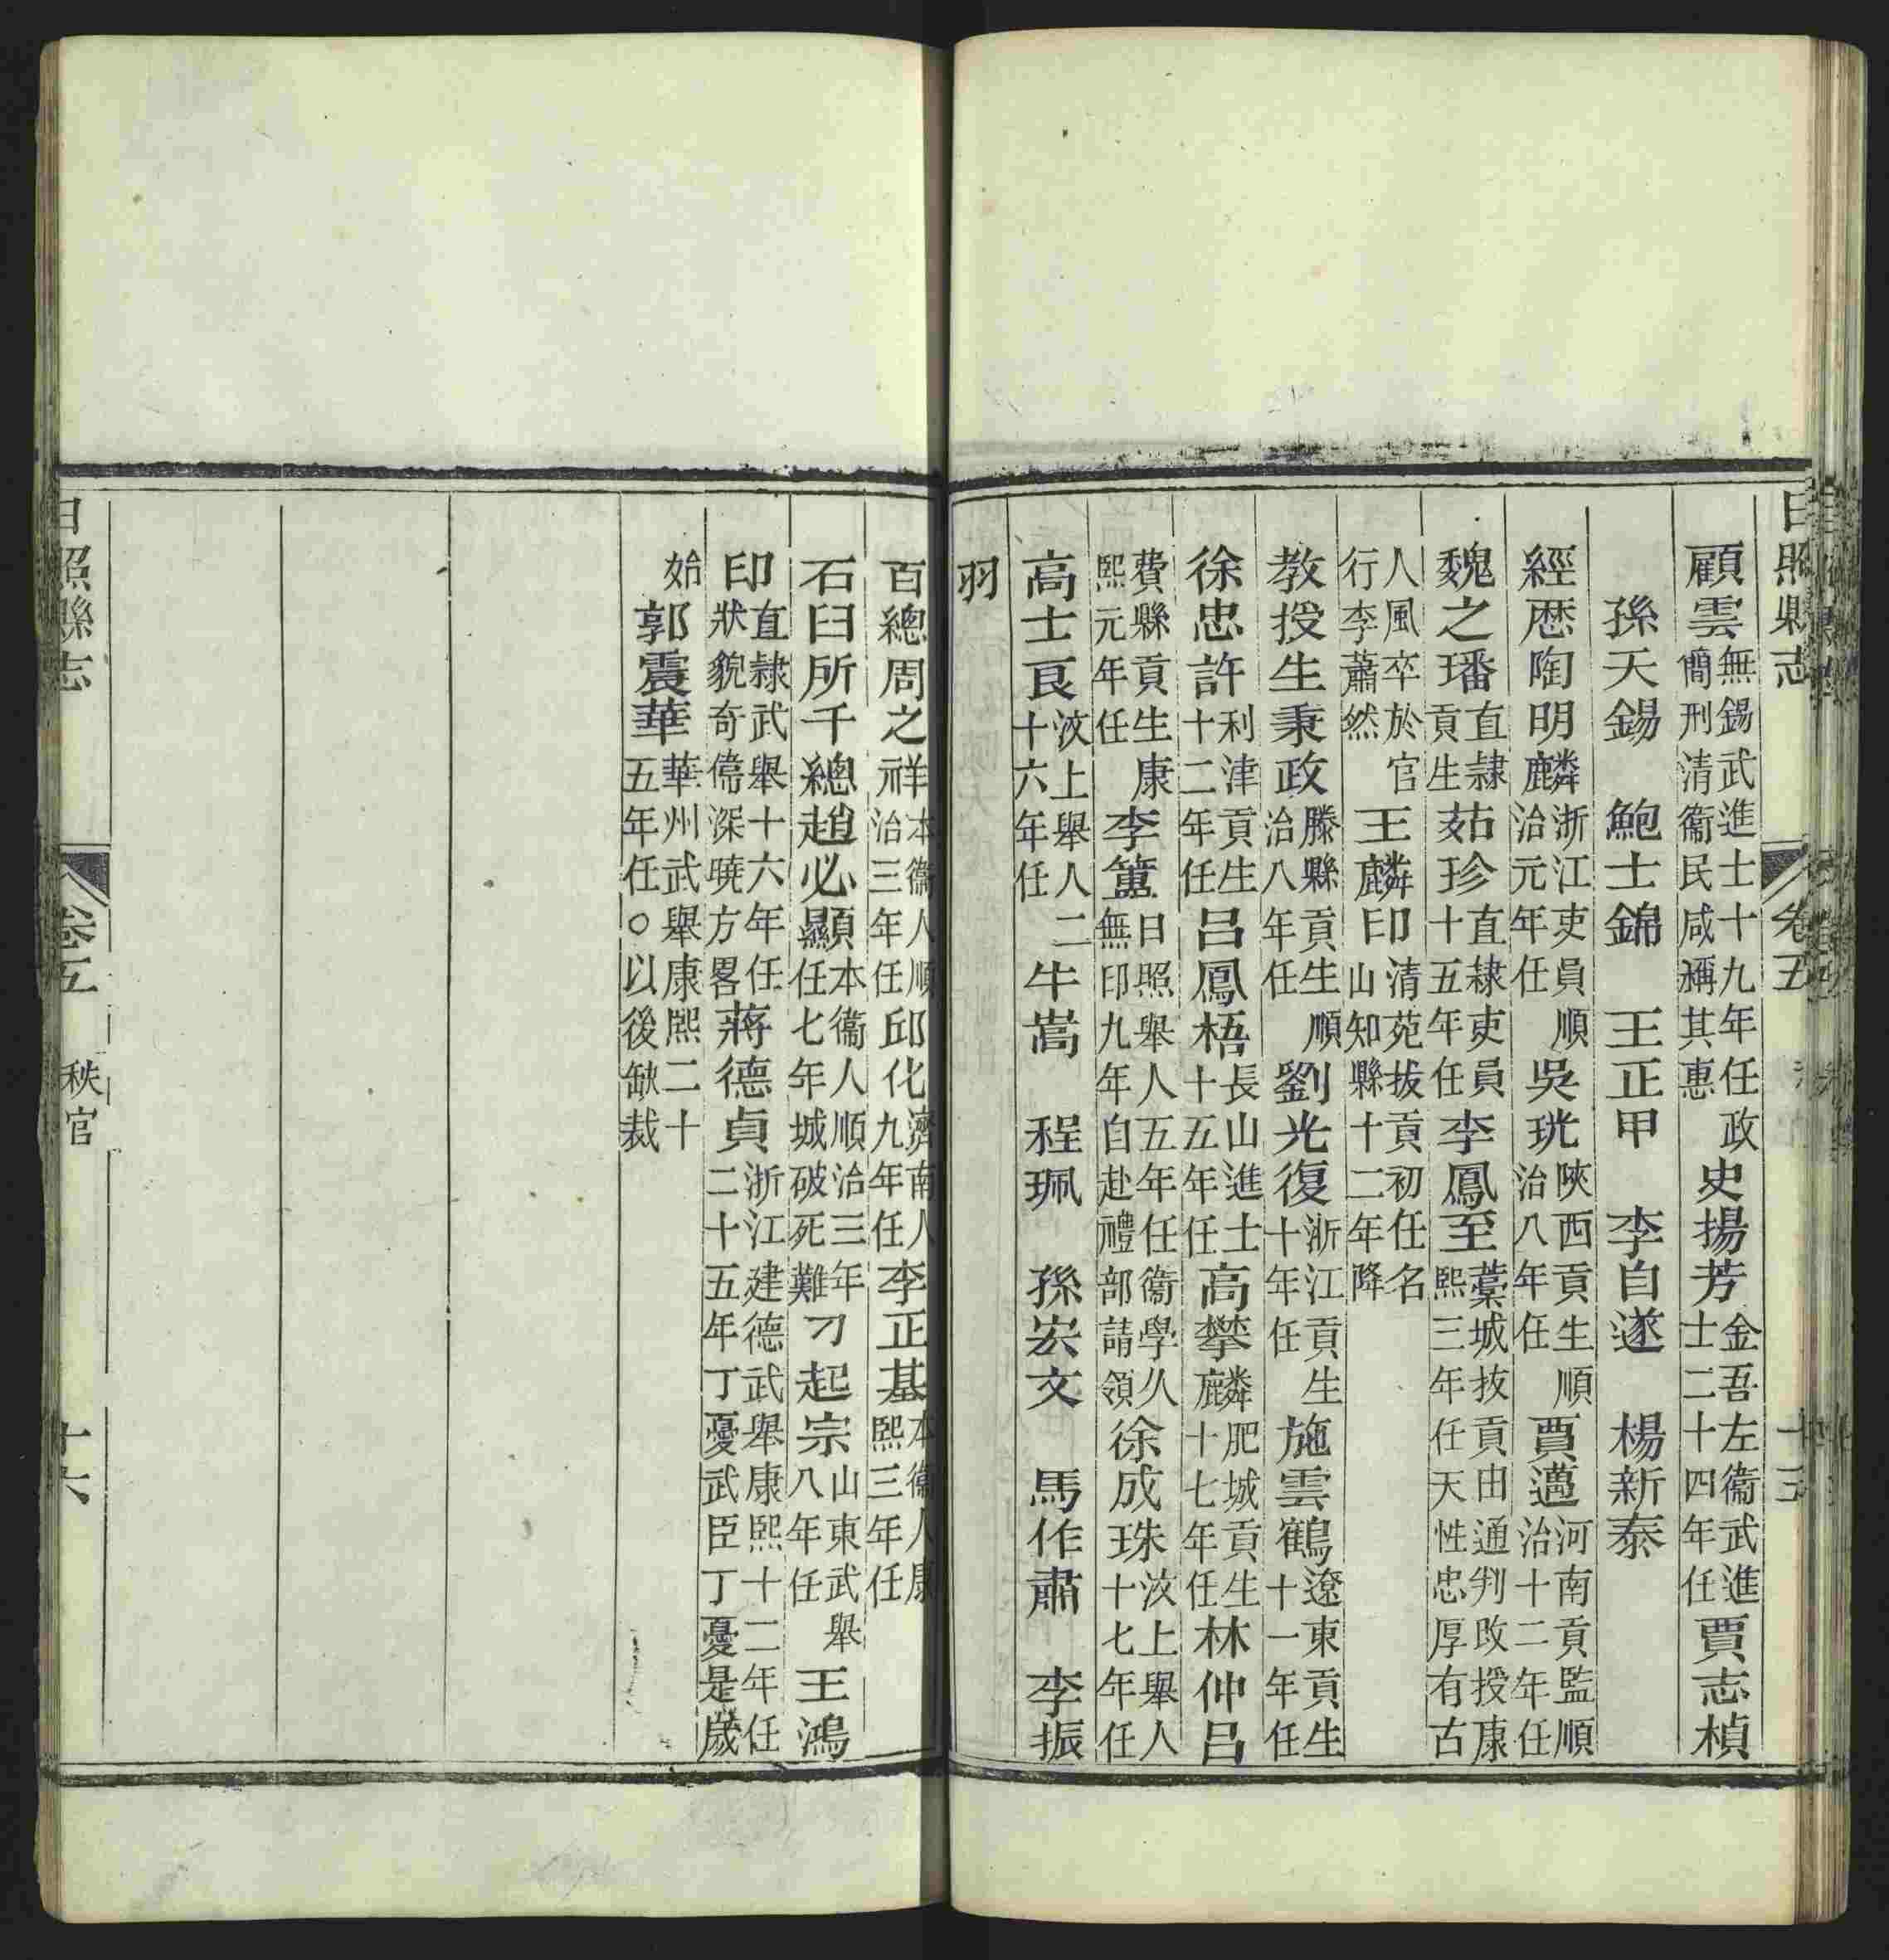 日照縣志 卷五 十三
顧雲無錫武進士十九年任政簡刑清衞民咸稱其惠史揚芳金吾左衞武進士二十四年任賈志楨
孫天錫 鮑士錦 王正甲 李自遂 楊新泰
經歷陶明麟浙江吏員順治元年任吳珖陝西貢生順治八年任賈邁河南貢監順治十二年任
魏之璠直隸貢生茹珍直隸吏員十五年任李鳳至藁城拔貢由通判改授康熙三年任天性忠厚有古
人風卒於官行李蕭然王麟印清苑拔貢初任名山知縣十二年降
教授生秉政滕縣貢生順治八年任劉光復浙江貢生十年任施雲鶴遼東貢生十一年任
徐忠許利津貢生十二年任呂鳳梧長山進士十五年任高攀麟肥城貢生十七年任林仲呂
費縣貢生康熙元年任李簠日照舉人五年任衞學久無印九年自赴禮部請領徐成珠汶上舉人十七年任
高士良汶上舉人二十六年任牛嵩 程珮 孫宏文 馬作肅 李振
羽
百總周之祥本衞人順治三年任邱化濟南人九年任李正基本衞人康熙三年任
石臼所千總趙必顯本衞人順治三年任七年城破死難刁起宗山東武舉八年任王鴻
印直隸武舉十六年任狀貌奇偉深曉方畧蔣德貞浙江建德武舉康熙十二年任二十五年丁憂武臣丁憂是歲
始郭震華華州武舉康熙二十五年任○以後缺裁
日照縣志 卷五 秩官 十六